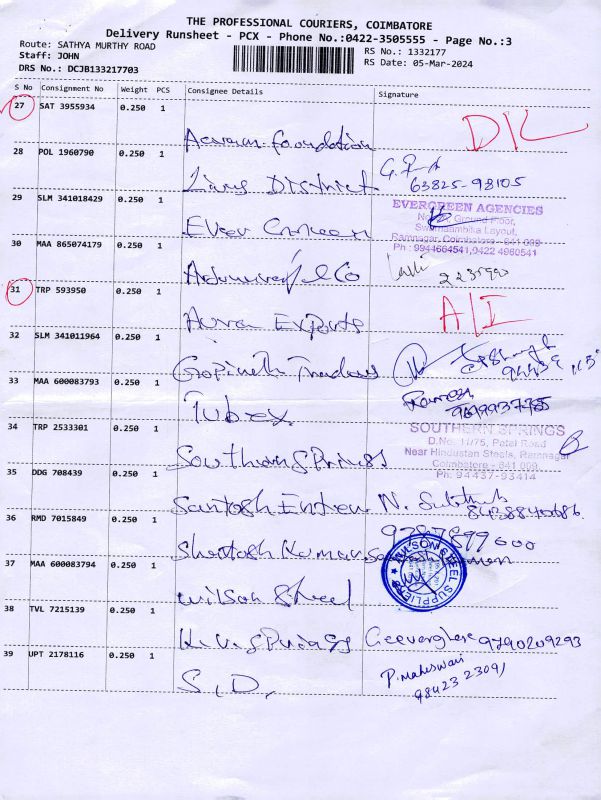 THE PROFESSIONAL COURIERS, COIMBATORE
Delivery Runsheet - PCX - Phone No.:0422-3505555 - Page No.:3
Route: SATHYA MURTHY ROAD
Staff: JOHN
DRS No.: DCJB133217703
RS No.: 1332177
RS Date: 05-Mar-2024
S No Consignment No Weight PCS Consignee Details Signature
27 SAT 3955934 0.250 1
Foundation D/L
28 POL 1960790 0.250 1
District 63825-98105
29 SLM 341018429 0.250 1
EVERGREEN AGENCIES
Ground Floor,
Swarnambika Layout,
Ramnagar, Coimbatore - 641 009
Ph : 9944664541,0422 4960541
Ever
30 MAA 865074179 0.250 1
& Co
31 TRP 593950 0.250 1
Exports A/I
32 SLM 341011964 0.250 1
Gopinath Traders
33 MAA 600083793 0.250 1
Tubex Ramesh
34 TRP 2533301 0.250 1
SOUTHERN SPRINGS
D.No. 11/75, Patel Road
Near Hindustan Steels, Ramnagar
Coimbatore - 641 009
Ph. 94437-93414
Southern Springs
35 DDG 708439 0.250 1
Santosh N.
36 RMD 7015849 0.250 1
9787899000
Santosh Kumar
37 MAA 600083794 0.250 1
WILSON STEEL SUPPLIERS
Wilson Steel
38 TVL 7215139 0.250 1
Geeverghese 9790209293
39 UPT 2178116 0.250 1
S.D. P. Maheswari
98423 23091